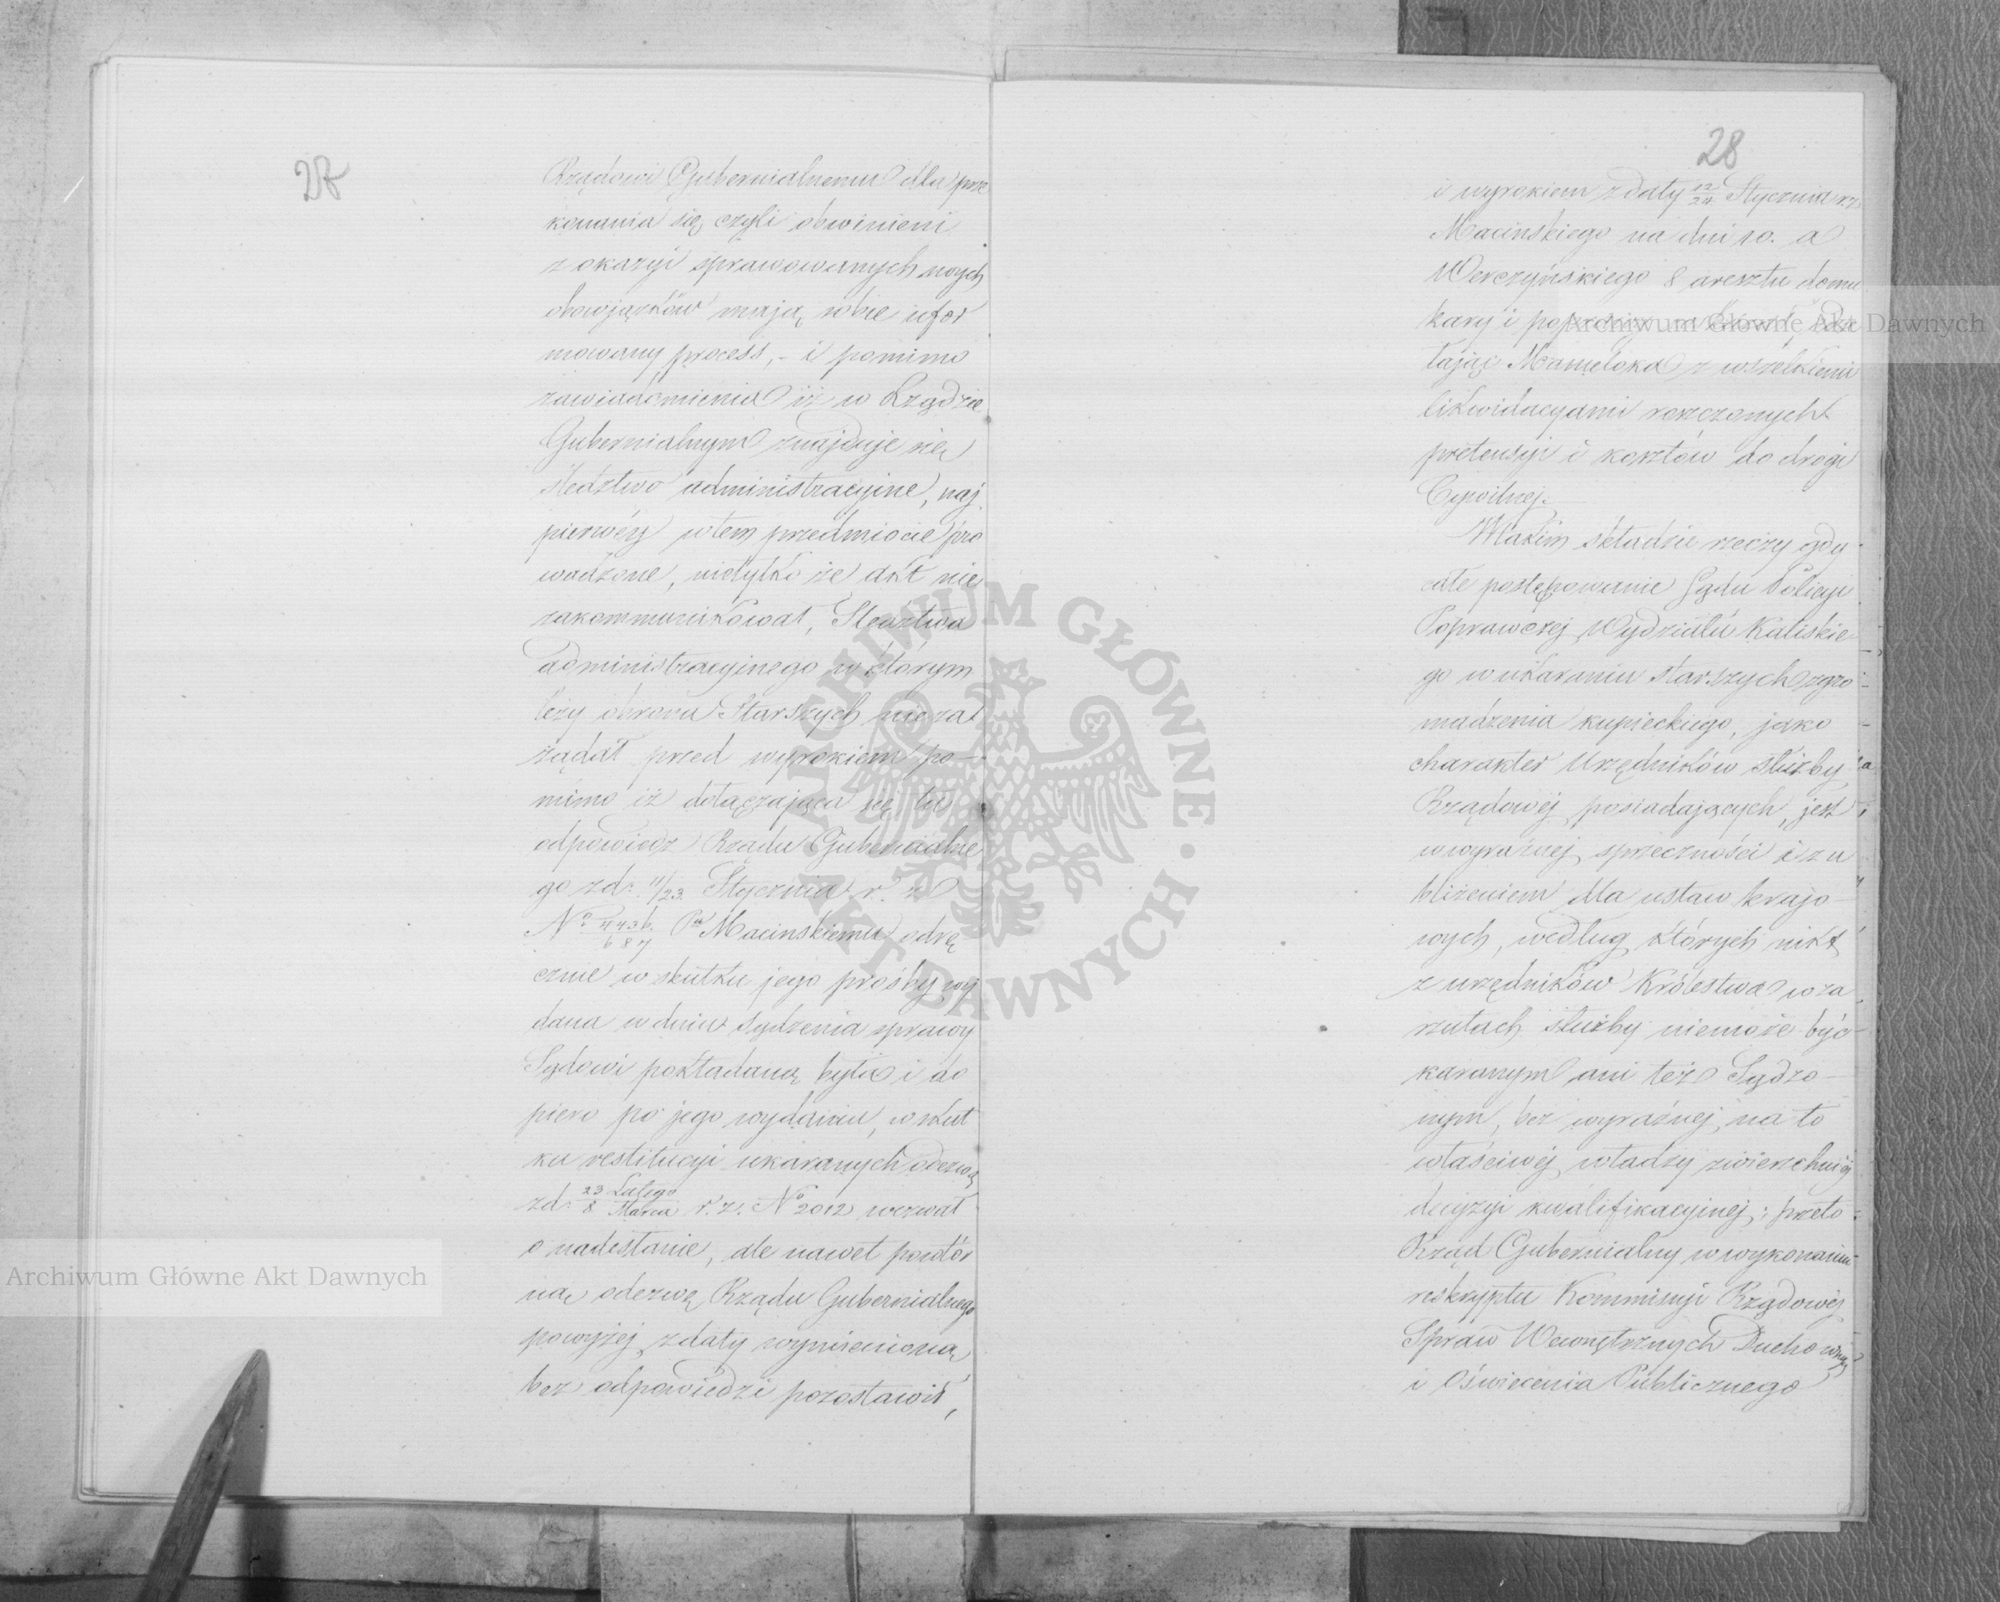 27
Rządowi Gubernialnemu dla prze
konania się, czyli obwinieni
z okazyi sprawowanych swych
obowiązków mają sobie ufor
mowany process, - i pomimo
zawiadomienia iż w Rządzie
Gubernialnym znajduje się
śledztwo administracyjne, naj
pierwéj w tem przedmiocie pro
wadzone, nietylko że akt nie
zakommunikował, Śledztwa
administracyjnego w którym
leży obrona Starszych nieza
żądał przed wyrokiem po-
mimo iż dołączająca się tu
odpowiedz Rządu Gubernialne
go z d. 11/23 Stycznia r. z.
No 4436/687 Pu Macinskiemu odrę
cznie w skutku jego prośby wy
dana w dniu sądzenia sprawy
Sądowi pokładaną była i do
piero po jego wydaniu, w skut
ku restitucyi ukaranych odezwą
z d. 23 Lutego/8 Marca r. z. No 2012 wezwał
o nadesłanie, ale nawet powtór
ną odezwę Rządu Gubernialnego
powyżej z daty wymienioną
bez odpowiedzi pozostawił,
28
i wyrokiem z daty 12/24 Stycznia r. z.
Macinskiego na dni 10. a
Werczyńskiego 8 aresztu domu
kary i poprawy
łając Mamełoka z wszelkiemi
likwidacyami rorzczonych
pretensyi i kosztów do drogi
Cywilnej.
W takim składzie rzeczy gdy
całe postępowanie Sądu Policyi
Poprawczej Wydziału Kaliskie
go w ukaraniu starszych zgro
madzenia kupieckiego, jako
charakter Urzędników służby
Rządowéj posiadających, jest
w wyraźnej sprzeczności i z u
bliżeniem dla ustaw krajo-
wych, według których nikt
z urzędników Królestwa w za
rzutach służby niemoże być
karanym ani też Sądzo-
nym, bez wyraźnej na to
właściwéj władzy zwierzchniéj
decyzyi kwalifikacyjnej; przeto
Rząd Gubernialny w wykonaniu
reskryptu Kommissyi Rządowéj
Spraw Wewnętrznych Duchownych
i Oświecenia Publicznego
Archiwum Główne Akt Dawnych
Archiwum Główne Akt Dawnych
ARCHIWUM GŁÓWNE · AKT DAWNYCH ·